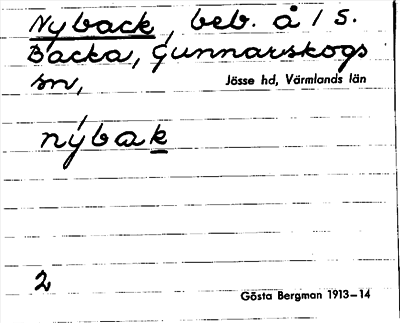 Nyback, beb. å 1 S.
Backa, Gunnarskogs
sn,
Jösse hd, Värmlands län
nýbak
2
Gösta Bergman 1913–14